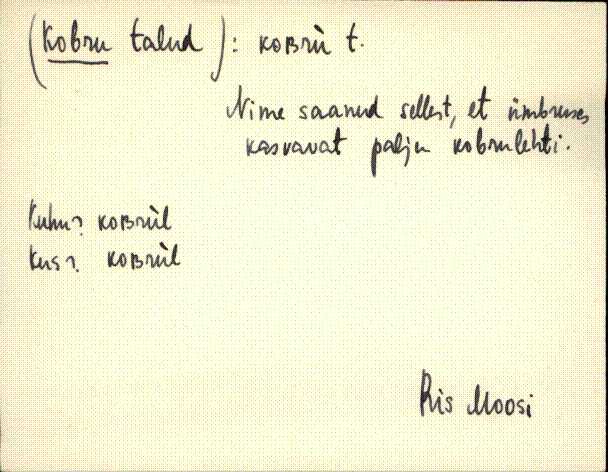 (Kobru talud): koʙrù t.
Nime saanud sellest, et ümbruses
kasvavat palju kobrulehti.
Kuhu? koʙrùl
Kus? koʙrùl
Ris Moosi